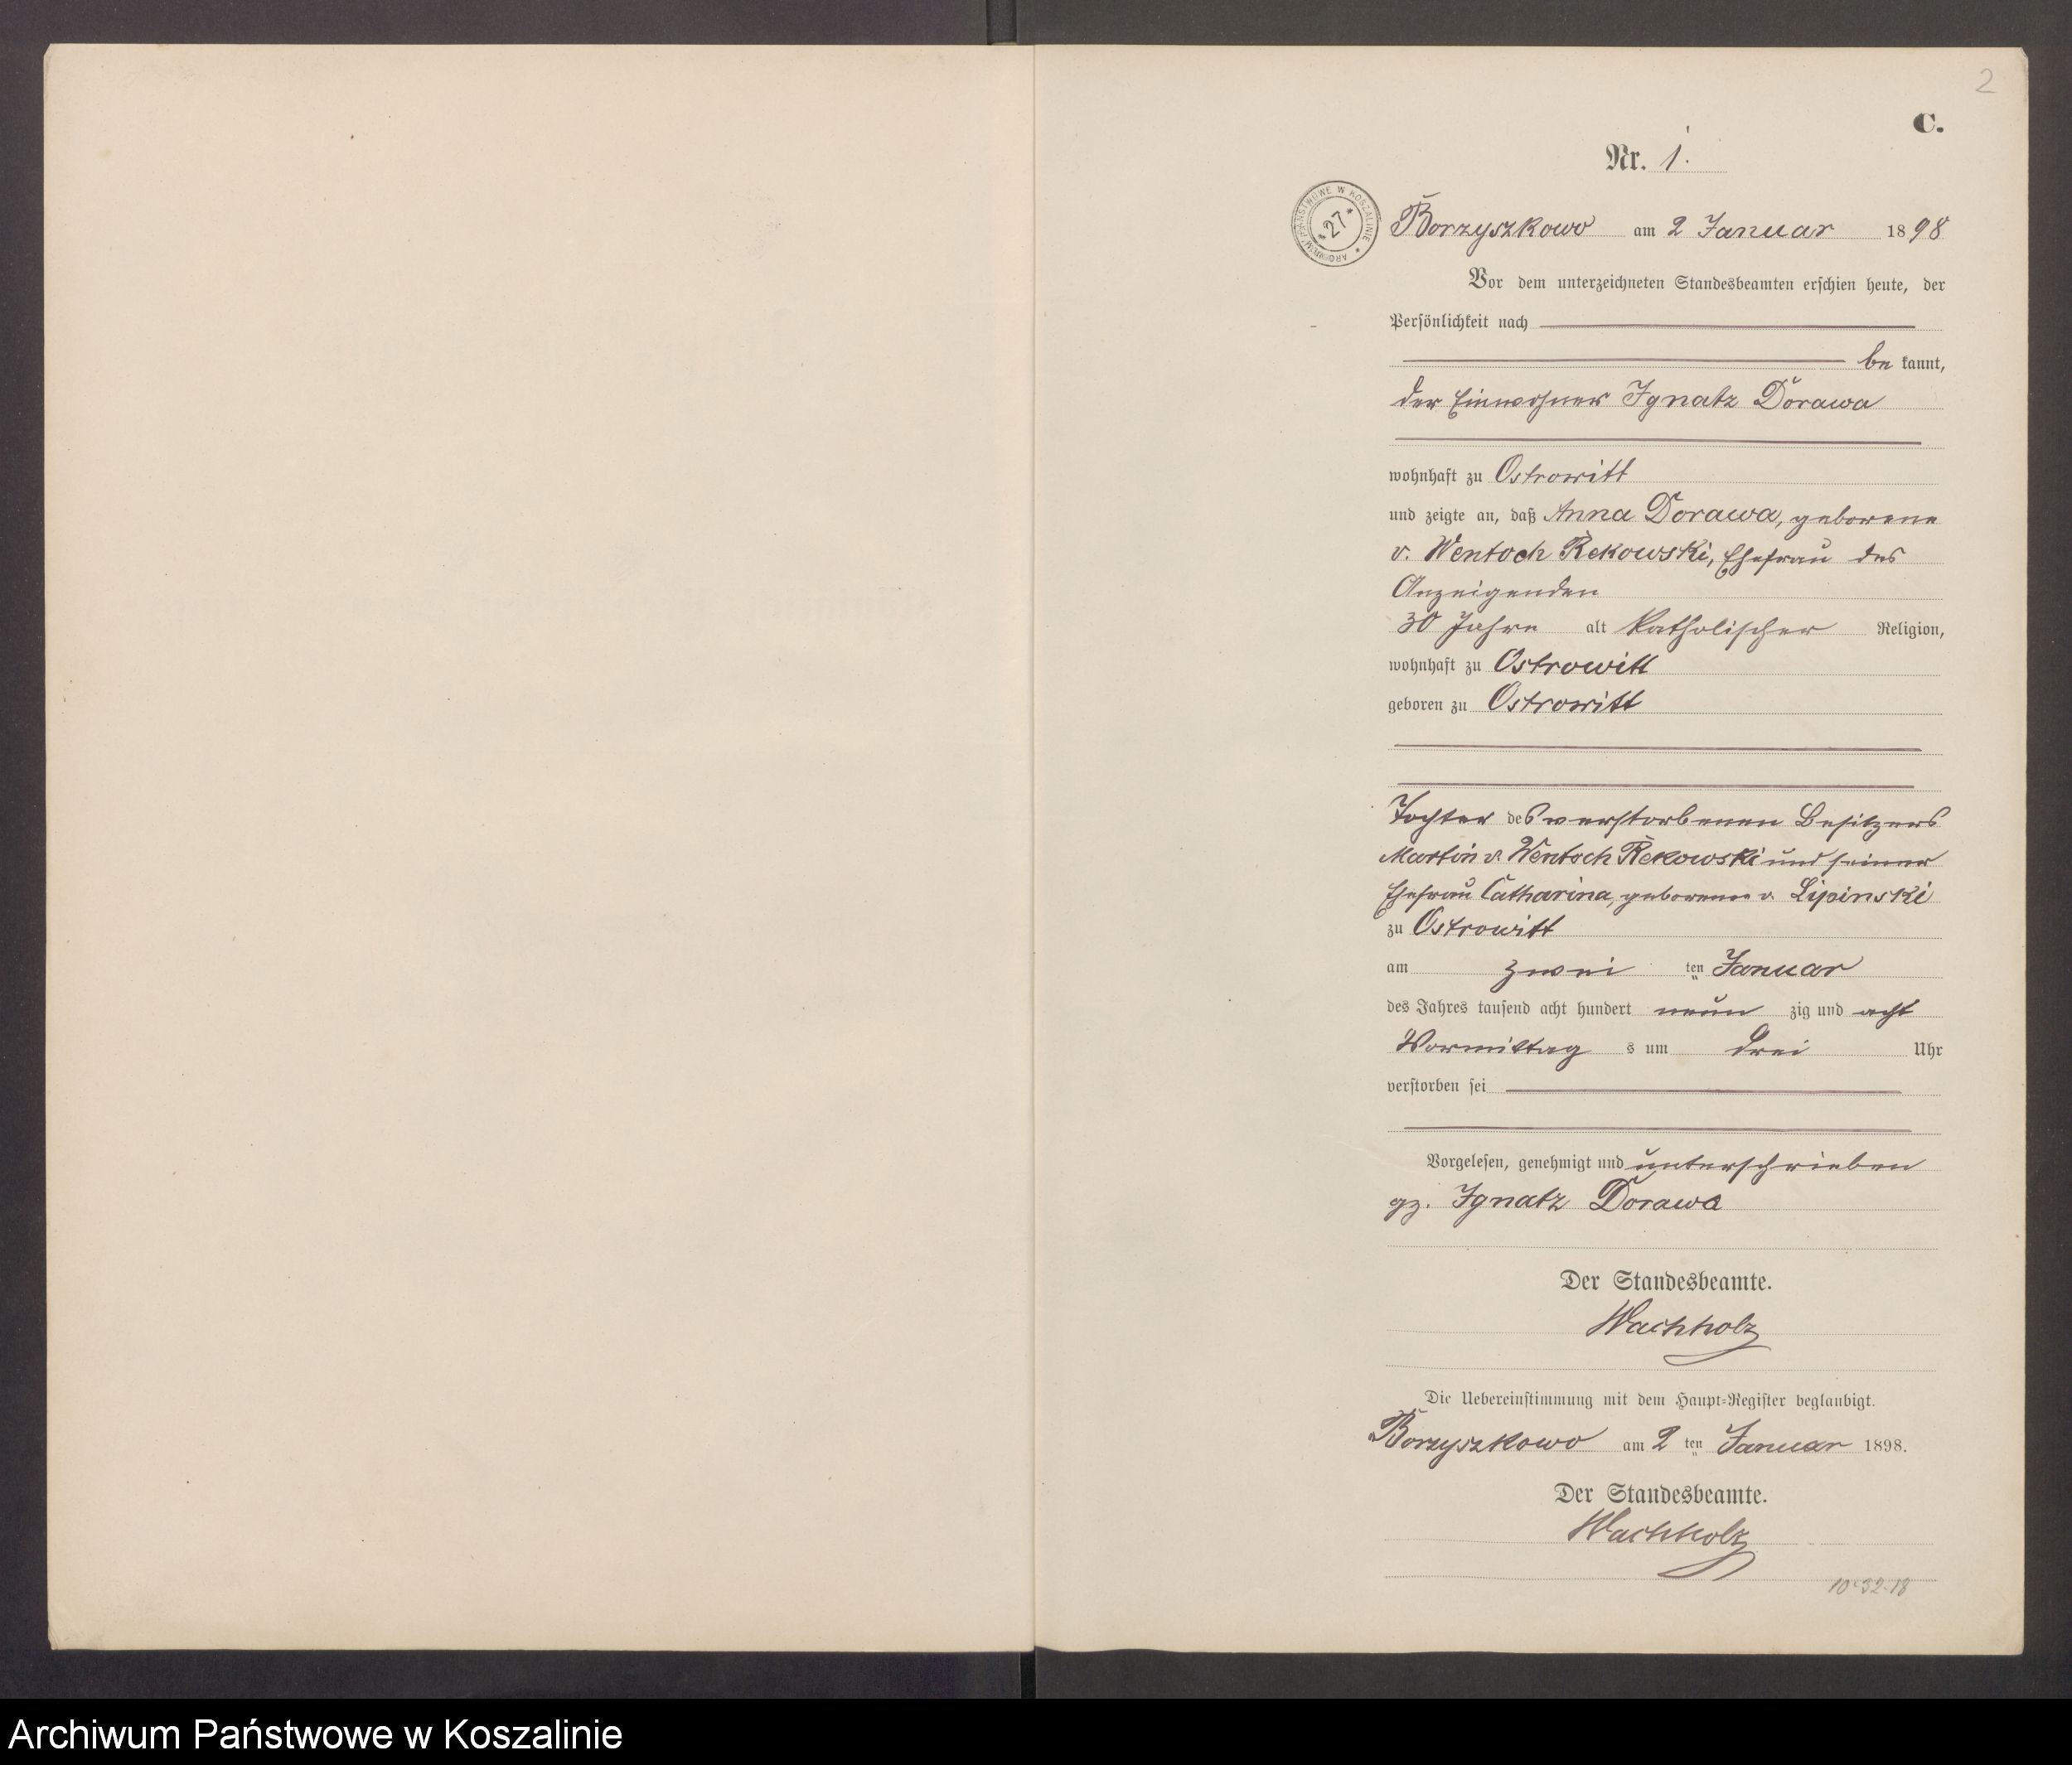 2
C.
Nr. 1.
ARCHIWUM PAŃSTWOWE W KOSZALINIE * 27 *
Borzyszkowo am 2 Januar 1898
Vor dem unterzeichneten Standesbeamten erschien heute, der
Persönlichkeit nach
be kannt,
der Einwohner Ignatz Dorawa
wohnhaft zu Ostrowitt
und zeigte an, daß Anna Dorawa, geborene
v. Wentoch Rekowski, Ehefrau des
Anzeigenden
30 Jahre alt katholischer Religion,
wohnhaft zu Ostrowitt
geboren zu Ostrowitt
Tochter des verstorbenen Besitzers
Martin v. Wentoch Rekowski und seiner
Ehefrau Catharina, geborenen v. Lipinski
zu Ostrowitt
am zwei ten Januar
des Jahres tausend acht hundert neun zig und acht
Vormittag s um drei Uhr
verstorben sei
Vorgelesen, genehmigt und unterschrieben
gz. Ignatz Dorawa
Der Standesbeamte.
Wachholz
Die Uebereinstimmung mit dem Haupt-Register beglaubigt.
Borzyszkowo am 2 ten Januar 1898.
Der Standesbeamte.
Wachholz
Archiwum Państwowe w Koszalinie